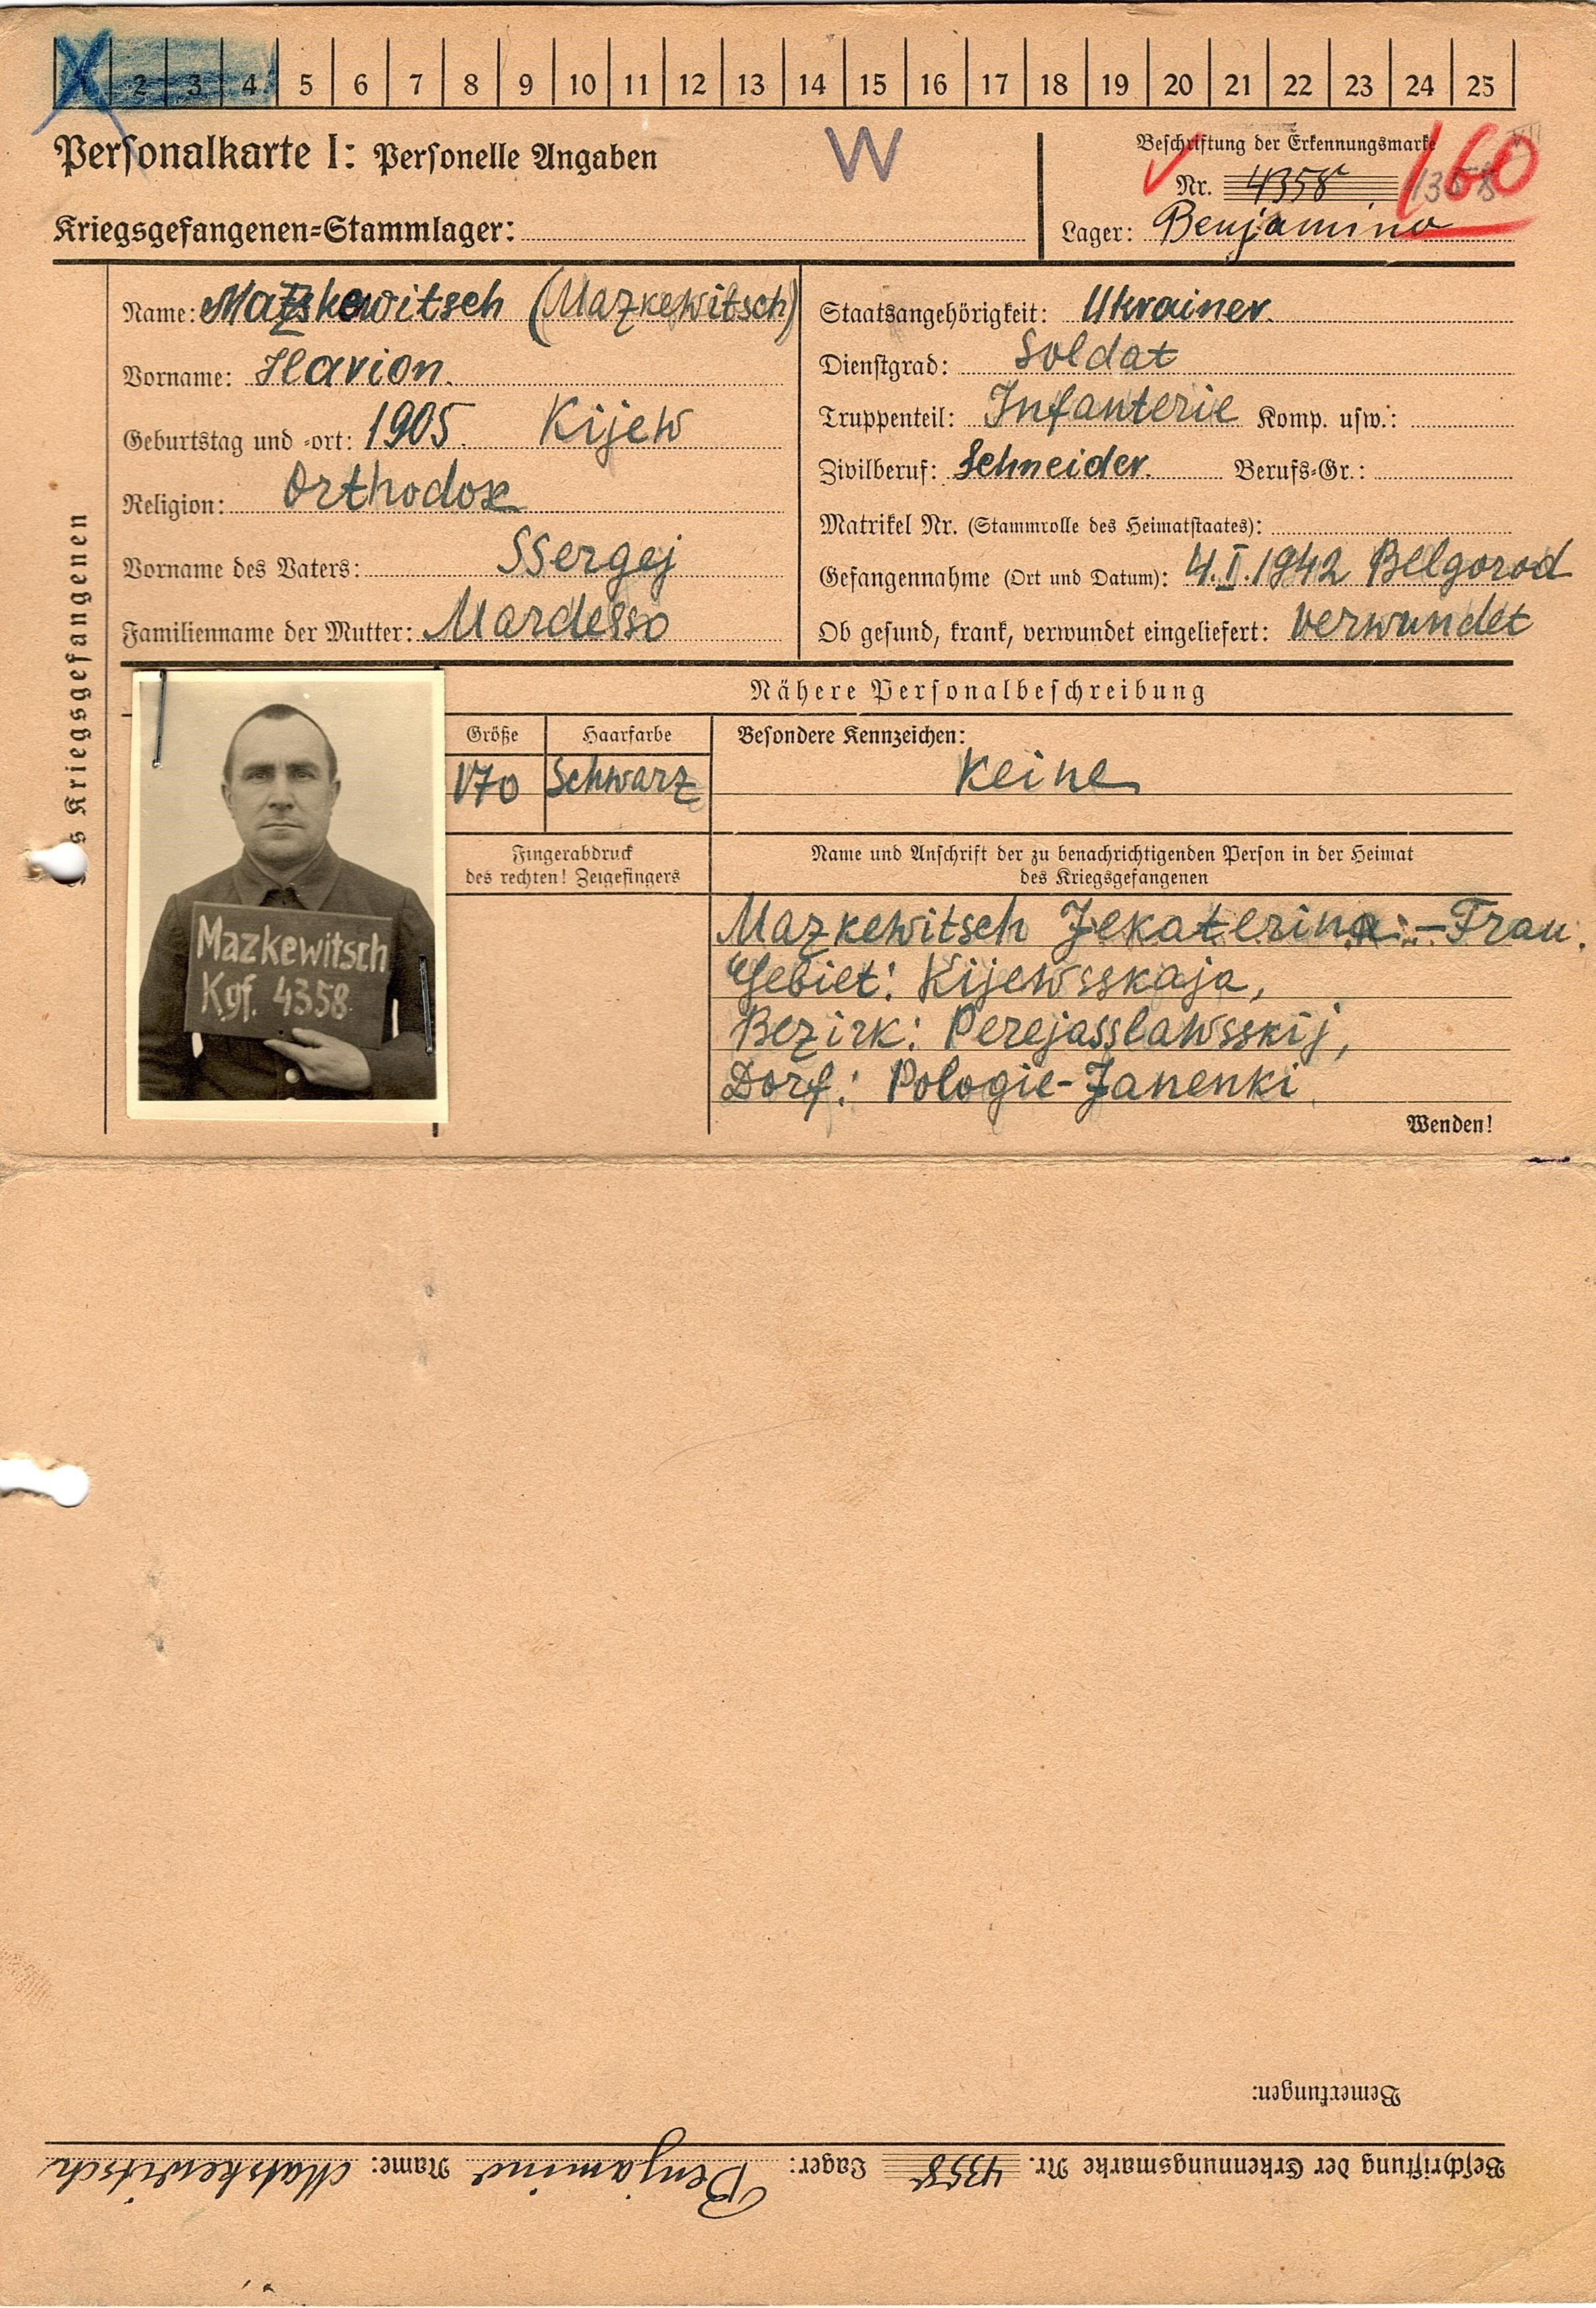 X 2 3 4 5 6 7 8 9 10 11 12 13 14 15 16 17 18 19 20 21 22 23 24 25
Personalkarte I: Personelle Angaben
W
Kriegsgefangenen-Stammlager:
Beschriftung der Erkennungsmarke
VII
Nr. 4358 4358
160
Lager: Benjamino
des Kriegsgefangenen
Name: Matskewitsch (Mazkewitsch)
Vorname: Ilarion.
Geburtstag und -ort: 1905. Kijew
Religion: Orthodox
Vorname des Vaters: SSergej
Familienname der Mutter: Mardesso
Staatsangehörigkeit: Ukrainer.
Dienstgrad: Soldat
Truppenteil: Infanterie Komp. usw.:
Zivilberuf: Schneider. Berufs-Gr.:
Matrikel Nr. (Stammrolle des Heimatstaates):
Gefangennahme (Ort und Datum): 4.I.1942 Belgorod
Ob gesund, krank, verwundet eingeliefert: verwundet
Nähere Personalbeschreibung
Größe
Haarfarbe
Besondere Kennzeichen:
170
Schwarz
Keine
Fingerabdruck
des rechten! Zeigefingers
Name und Anschrift der zu benachrichtigenden Person in der Heimat
des Kriegsgefangenen
Mazkewitsch
Kgf. 4358
Mazkewitsch Jekaterina - Frau.
Gebiet: Kijewsskaja,
Bezirk: Perejasslawsskij,
Dorf: Pologie-Janenki
Wenden!
Beschriftung der Erkennungsmarke Nr. 4358 Lager: Benjamino Name: Matskewitsch
Bemerkungen: